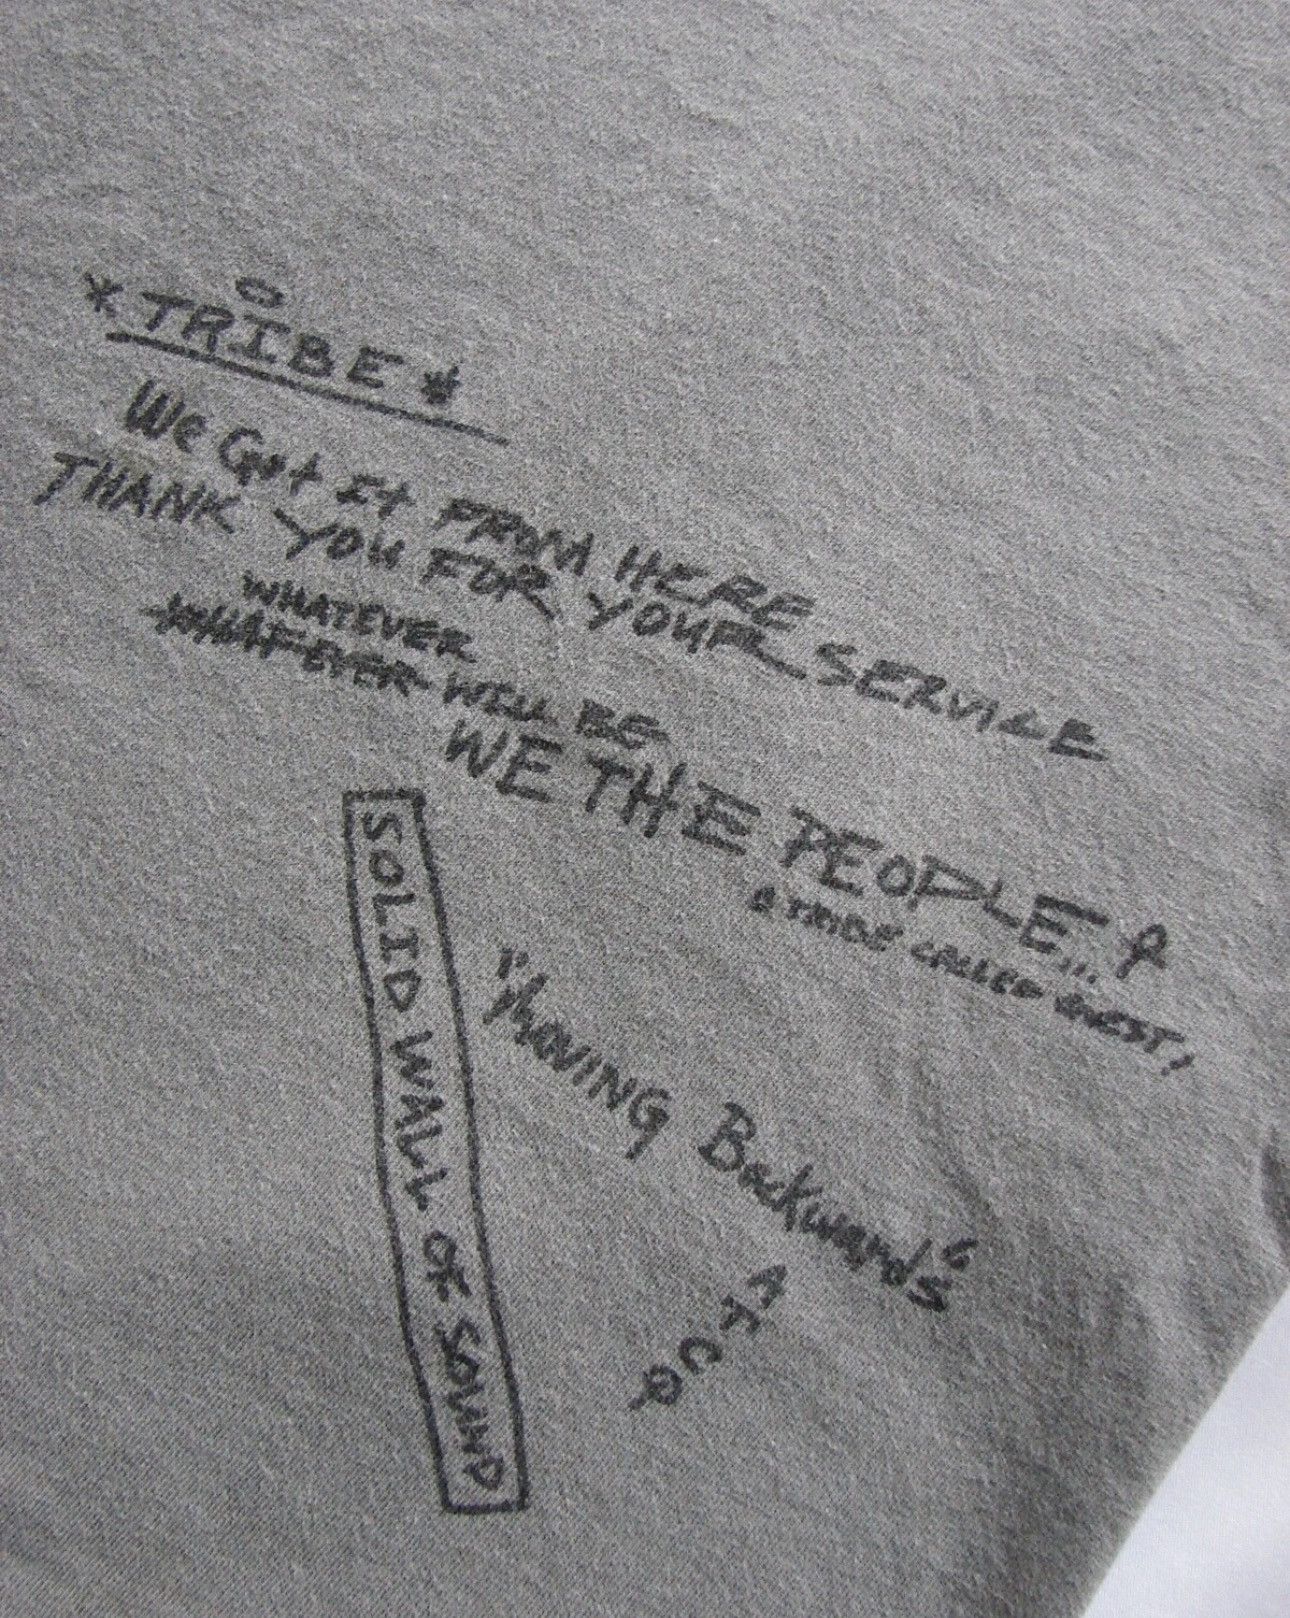 * TRIBE *
We Got It FROM HERE
THANK YOU FOR YOUR SERVICE
WHATEVER
WHATEVER WILL BE
WE THE PEOPLE...
a TRIBE CALLED QUEST!
SOLID WALL OF SOUND
"MOVING Backwards"
ATCQ